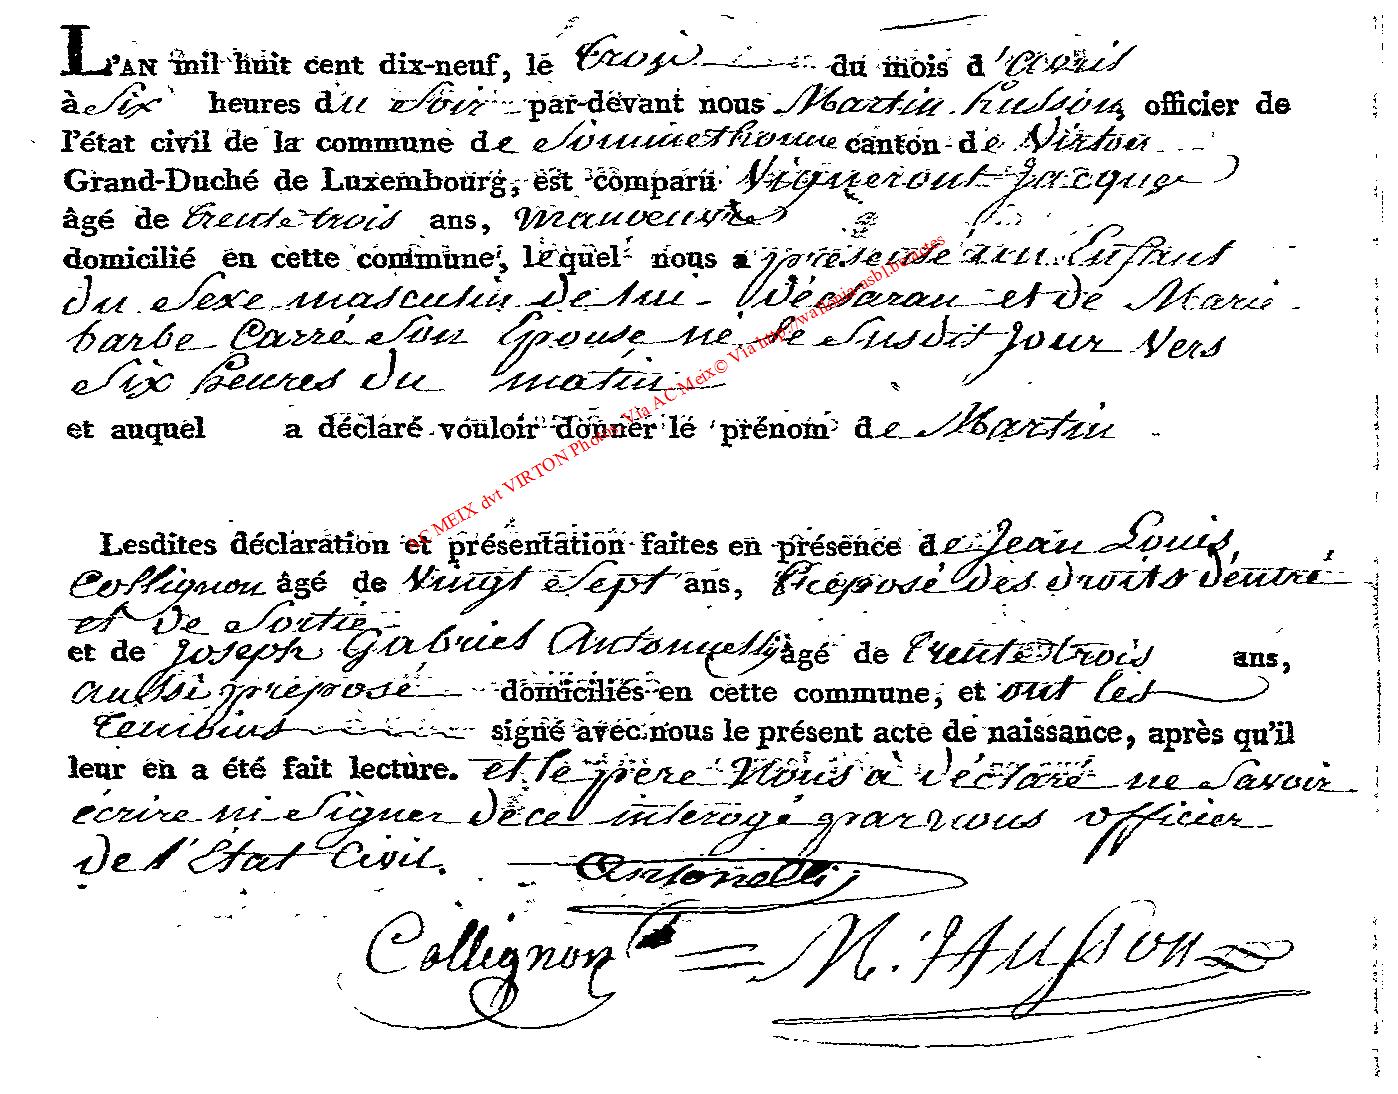 L'AN mil huit cent dix-neuf, le trois du mois d'avril
à Six heures du Soir par-devant nous Martin husson, officier de
l'état civil de la commune de Sommethonne canton de Virton
Grand-Duché de Luxembourg, est comparu Vigneront Jacque
âgé de trente trois ans, manoeuvre
domicilié en cette commune, lequel nous a présenté un Enfant
du Sexe masculin de lui déclaran et de Marie
barbe Carré Son Epouse né le Susdit Jour Vers
Six heures du matin
et auquel a déclaré vouloir donner le prénom de Martin
AC MEIX dvt VIRTON Photos Via AC Meix© Via http://wallonia-asbl.be/actes
Lesdites déclaration et présentation faites en présence de Jean Louis
Collignon âgé de Vingt Sept ans, Préposé des droits d'entré
et de Sortie
et de Joseph Gabriel Antonnelly âgé de trente trois ans,
aussi préposé domiciliés en cette commune, et ont les
temoins signé avec nous le présent acte de naissance, après qu'il
leur en a été fait lecture. et le père Nous à déclaré ne Savoir
écrire ni Signer de ce interogé par nous officier
de l'Etat Civil.
Antonelli
Collignon M. Husson